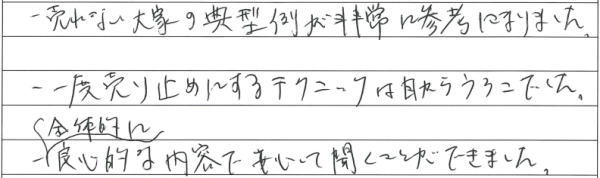 -売れない大家の典型例が非常に参考になりました。
-一度売り止めにするテクニックは目からうろこでした。
全体的に
-良心的な内容で安心して聞くことができました。